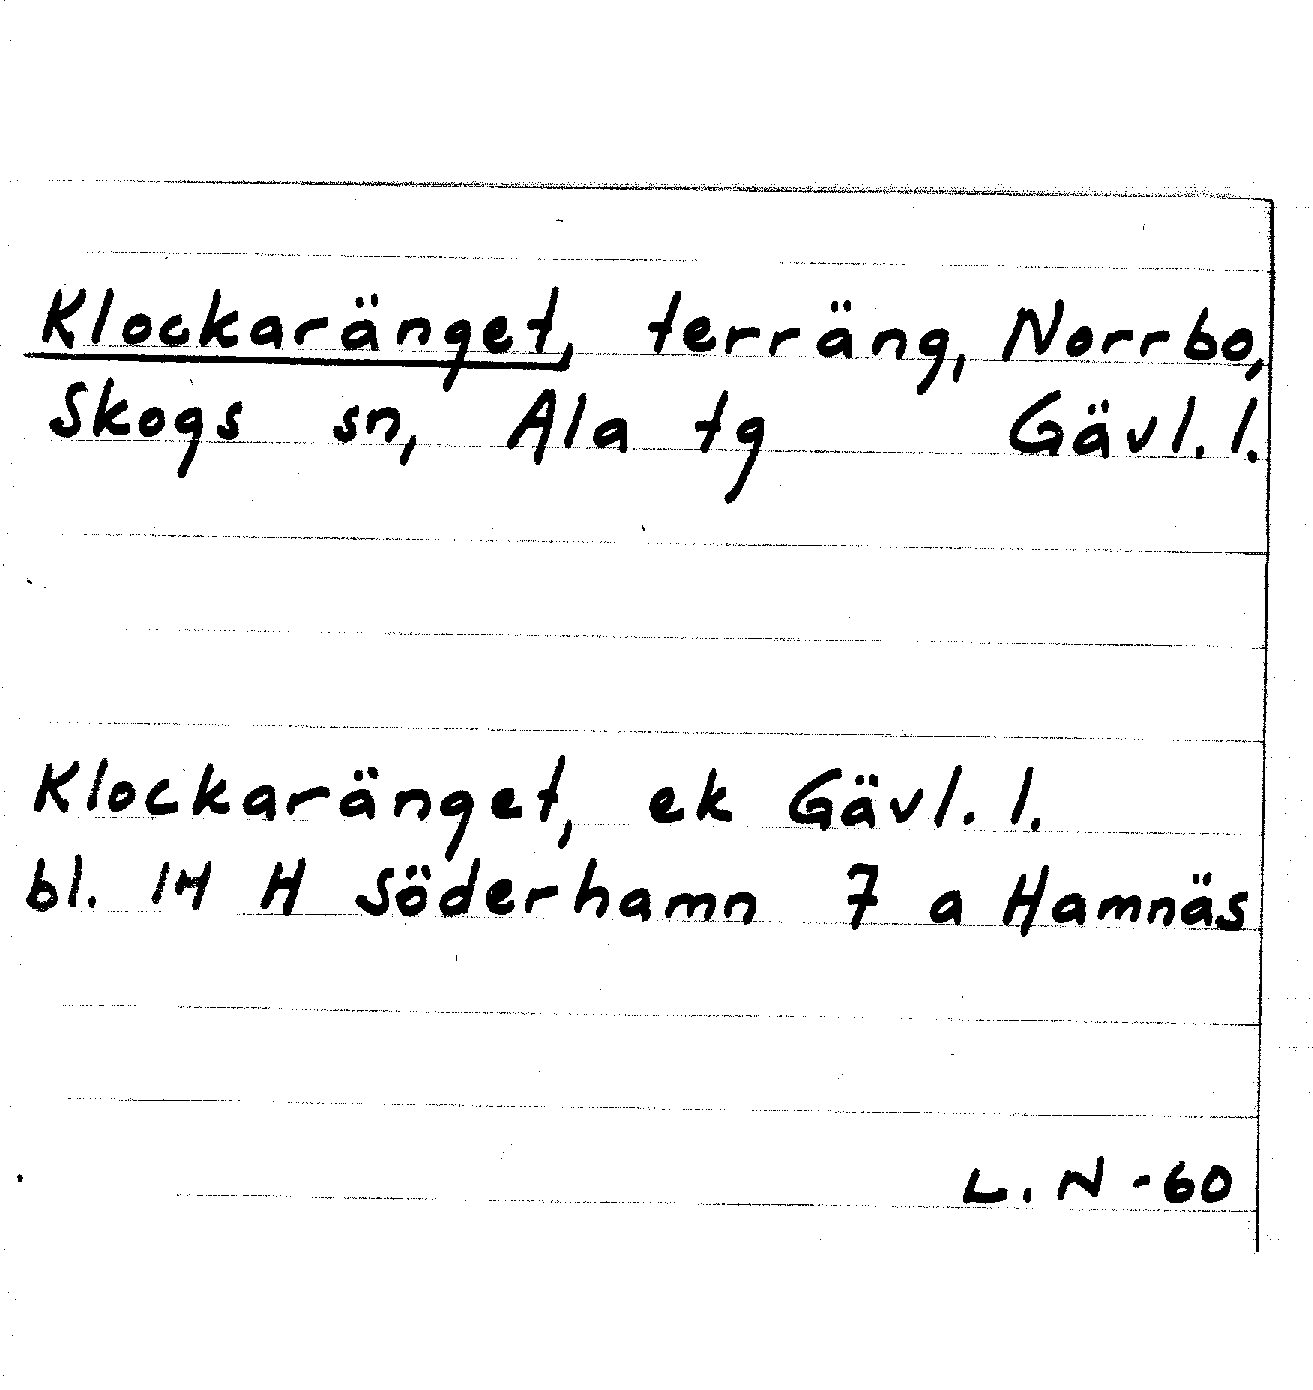 Klockaränget, terräng, Norrbo,
Skogs sn, Ala tg Gävl. l.
Klockaränget, ek Gävl. l.
bl. 14 H Söderhamn 7 a Hamnäs
L. N -60